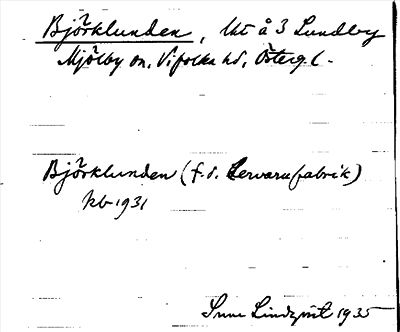 Björklunden, lht å 3 Lundby
Mjölby sn, Vifolka hd, Österg. l.
Björklunden (f.d. Lervarufabrik)
kb 1931
Sune Lindqvist 1935